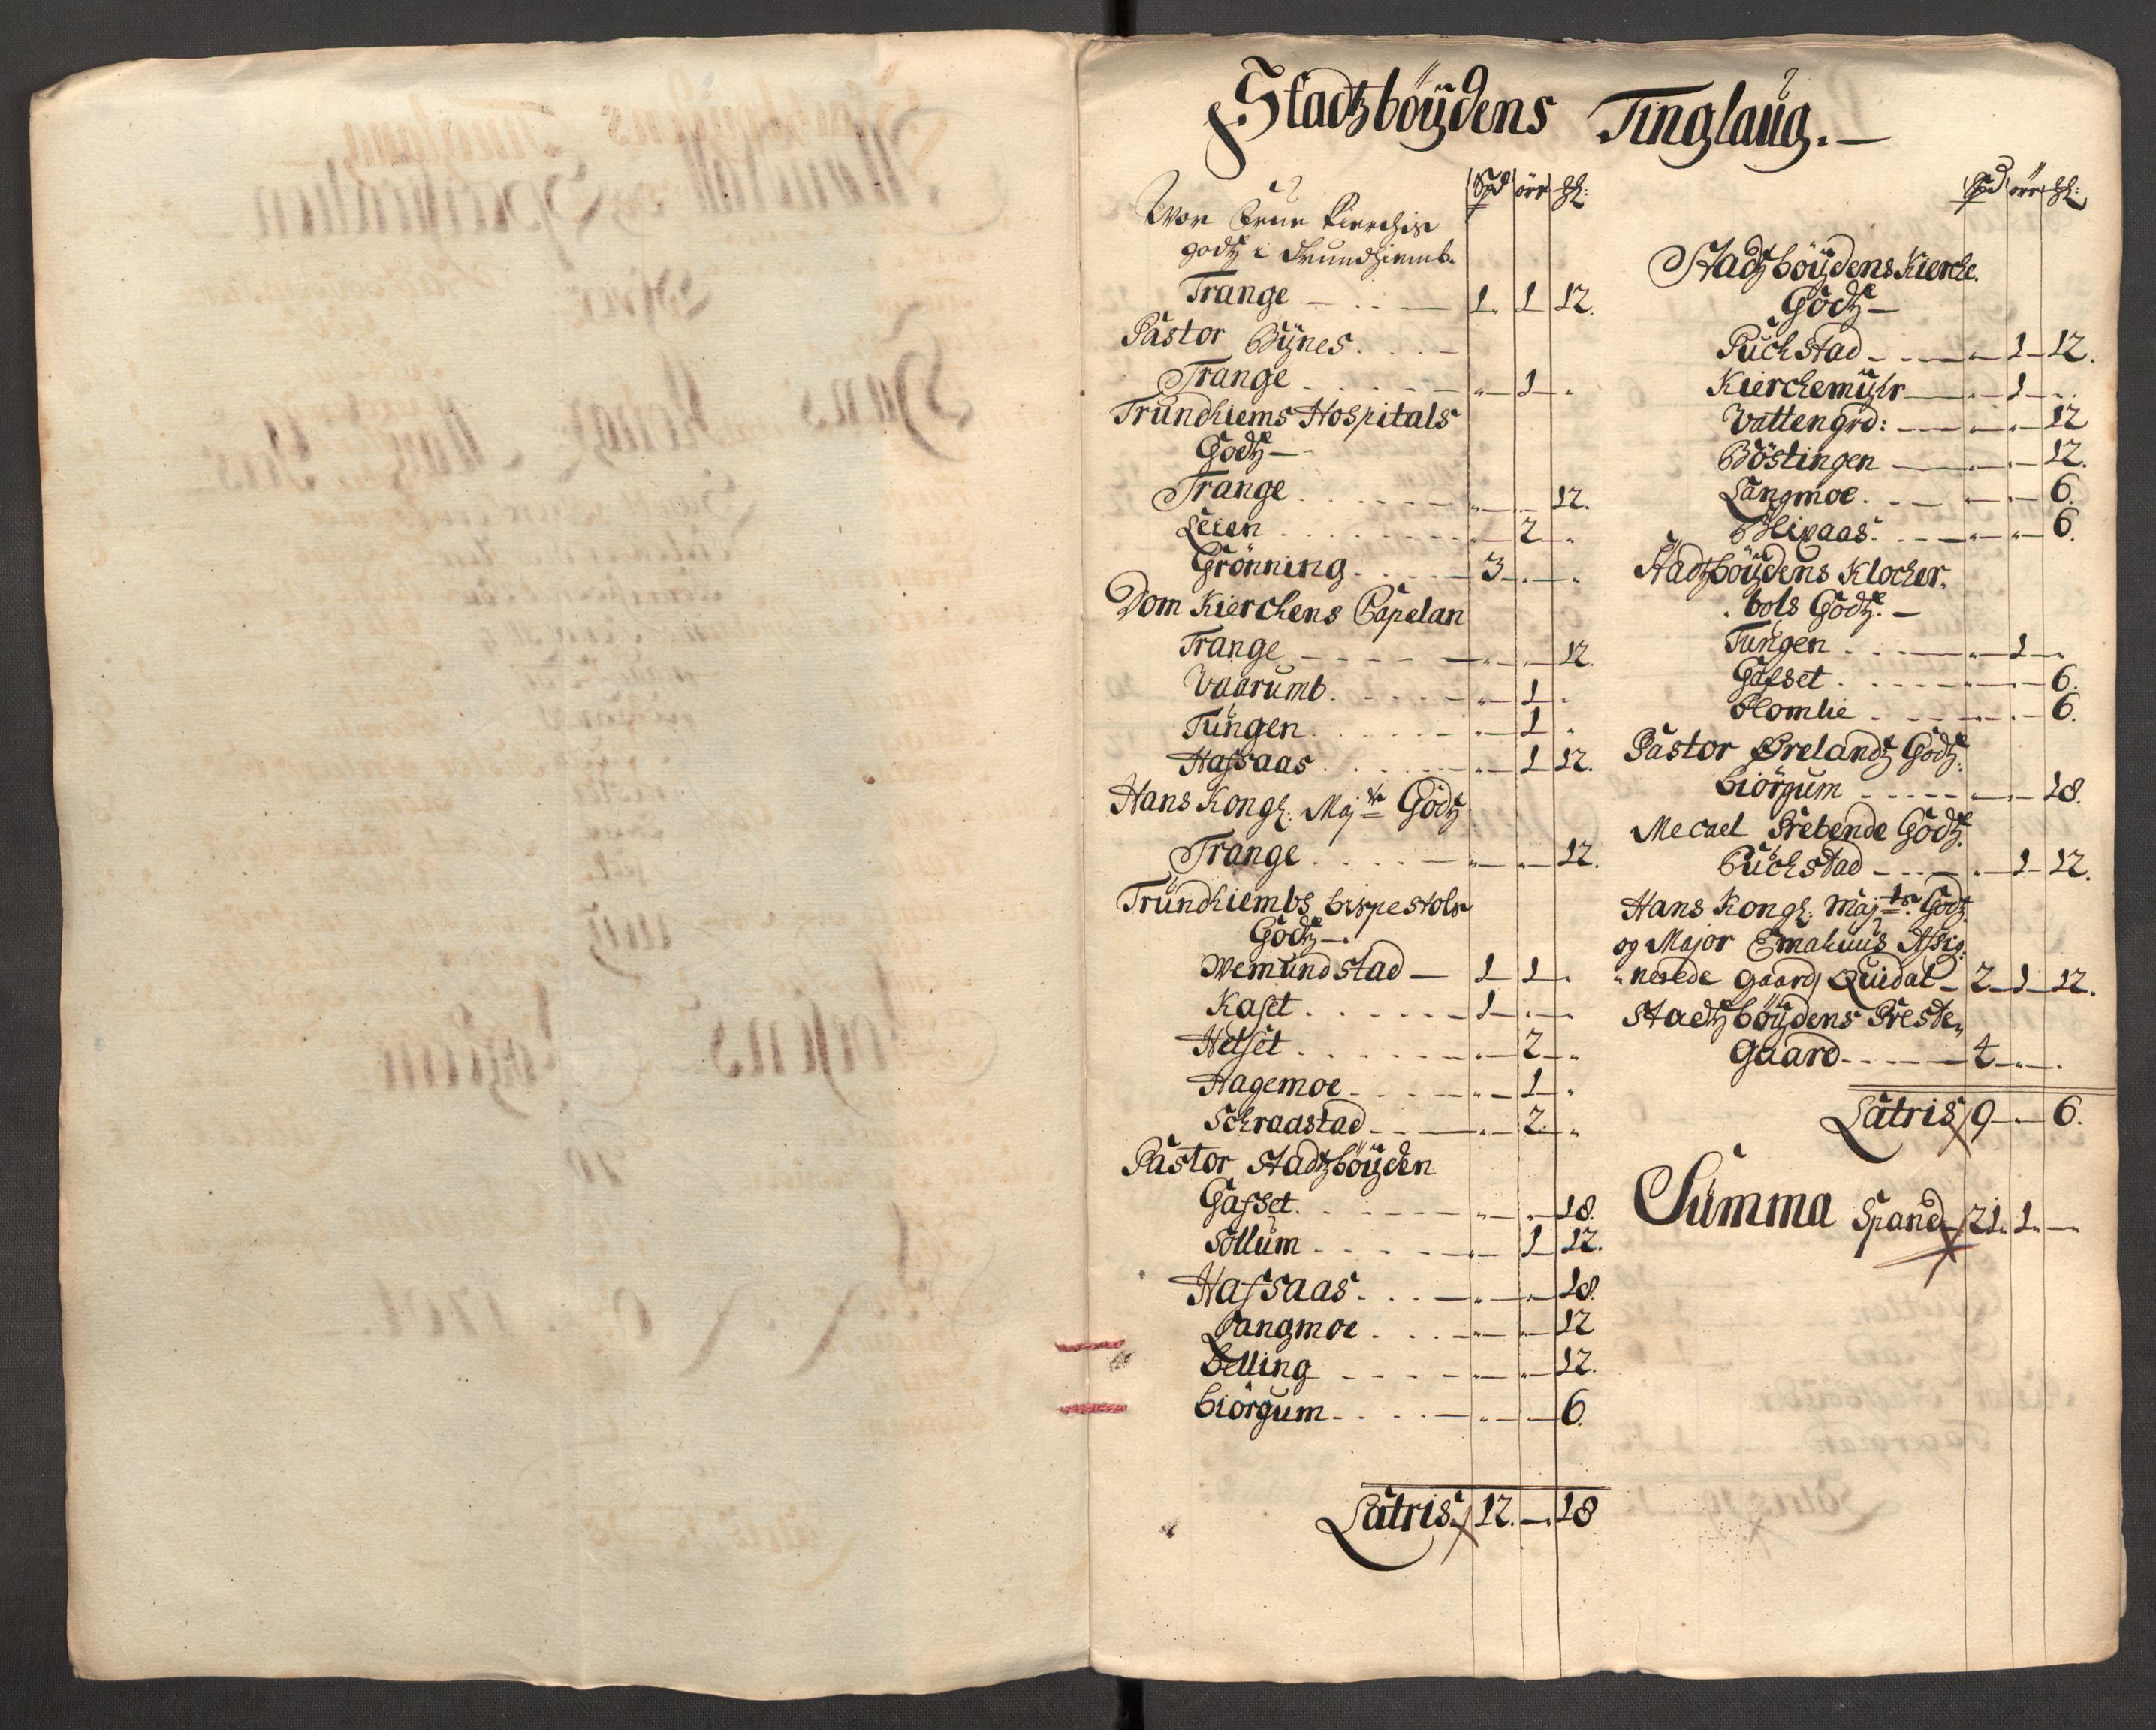 Stadtzböÿdens Tinglaug.—
Spd örr Hl:
Wor Frue Kierchis
godtz i Trundhiemb.
Trange — 1. 1 12.
Pastor Bÿnes.
Trange „ 1 „
Trundhiems Hospitals
Godtz—
Trange „ „ 12.
Leien „ 2 „
Grönning 3 „ „
Dom Kierchens Capelan
Trange „ „ 12.
Vaarumb „ 1 „
Tungen „ 1 „
Hafsaas „ 1 12.
Hans Kongl: Majts Godtz
Trange „ „ 12.
Trundhiembs bispestols
Godtz—
Wemundstad — 1 1 „
Kaset 1 „ „
Helset „ 2 „
Hagemoe „ 1 „
Schraastad „ 2 „
Pastor Stadtzböÿden
Gafset. „ „ 18.
Sollum „ 1 12.
Hafsaas. „ „ 18.
Langmoe „ „ 12
Belling „ „ 12.
biörgum „ „ 6.
Latris 12. — 18
Spd örr Hl:
Stadtzböÿdens Kierche.
Godtz—
Puchstad „ 1 12.
Kierchemÿhr „ 1 „
Vattengrd: „ „ 12
Böstingen „ „ 12.
Langmoe. „ „ 6.
„ „ 6.
Stadtzböÿdens Klocher„
bols Godtz.—
Tungen „ 1 „
Gafset „ „ 6.
Plomlie „ „ 6.
Pastor Ørelandtz Godtz.
biörgum „ „ 18.
Mecael Prebende Godtz.
Puchstad „ 1 12.
Hans Kongl: Majts: Godtz
og Major Emahuus Assig:
„nerede gaard Quidal 2 1 12.
Stadtzböÿdens Preste„
Gaard 4 „ „
Latris 9 „ 6.
Summa Spand 21. 1. —